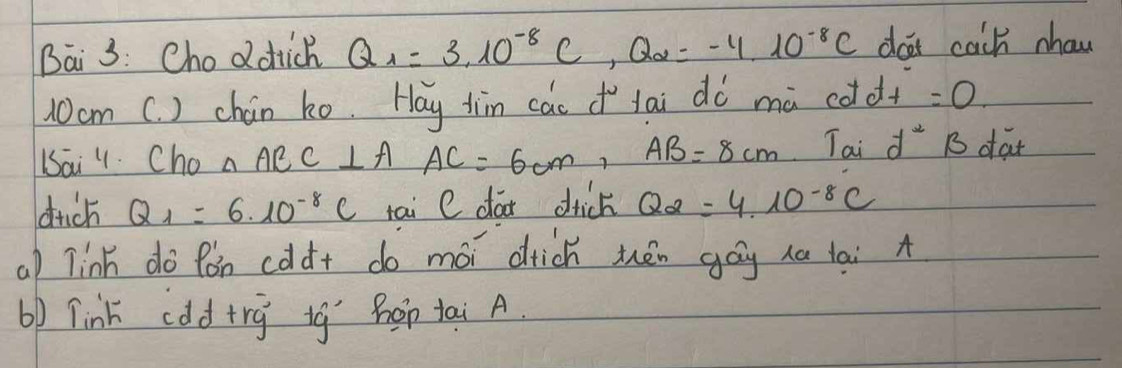 Bài 3: Cho 2 đtích Q₁ = 3.10⁻⁸ C, Q₂ = -4.10⁻⁸ C đặt cách nhau
10cm (.) chân ko. Hãy tìm các đ² tại đó mà cđđt = 0.
Bài 4. Cho △ ABC ⊥ A AC = 6cm, AB = 8cm. Tại đ² B đặt
đtích Q₁ = 6.10⁻⁸ C tại C đặt đtích Q₂ = 4.10⁻⁸ C
a) Tính độ lớn cđđt do mỗi đtích trên gây ra tại A.
b) Tính cđđ trg tg hợp tại A.